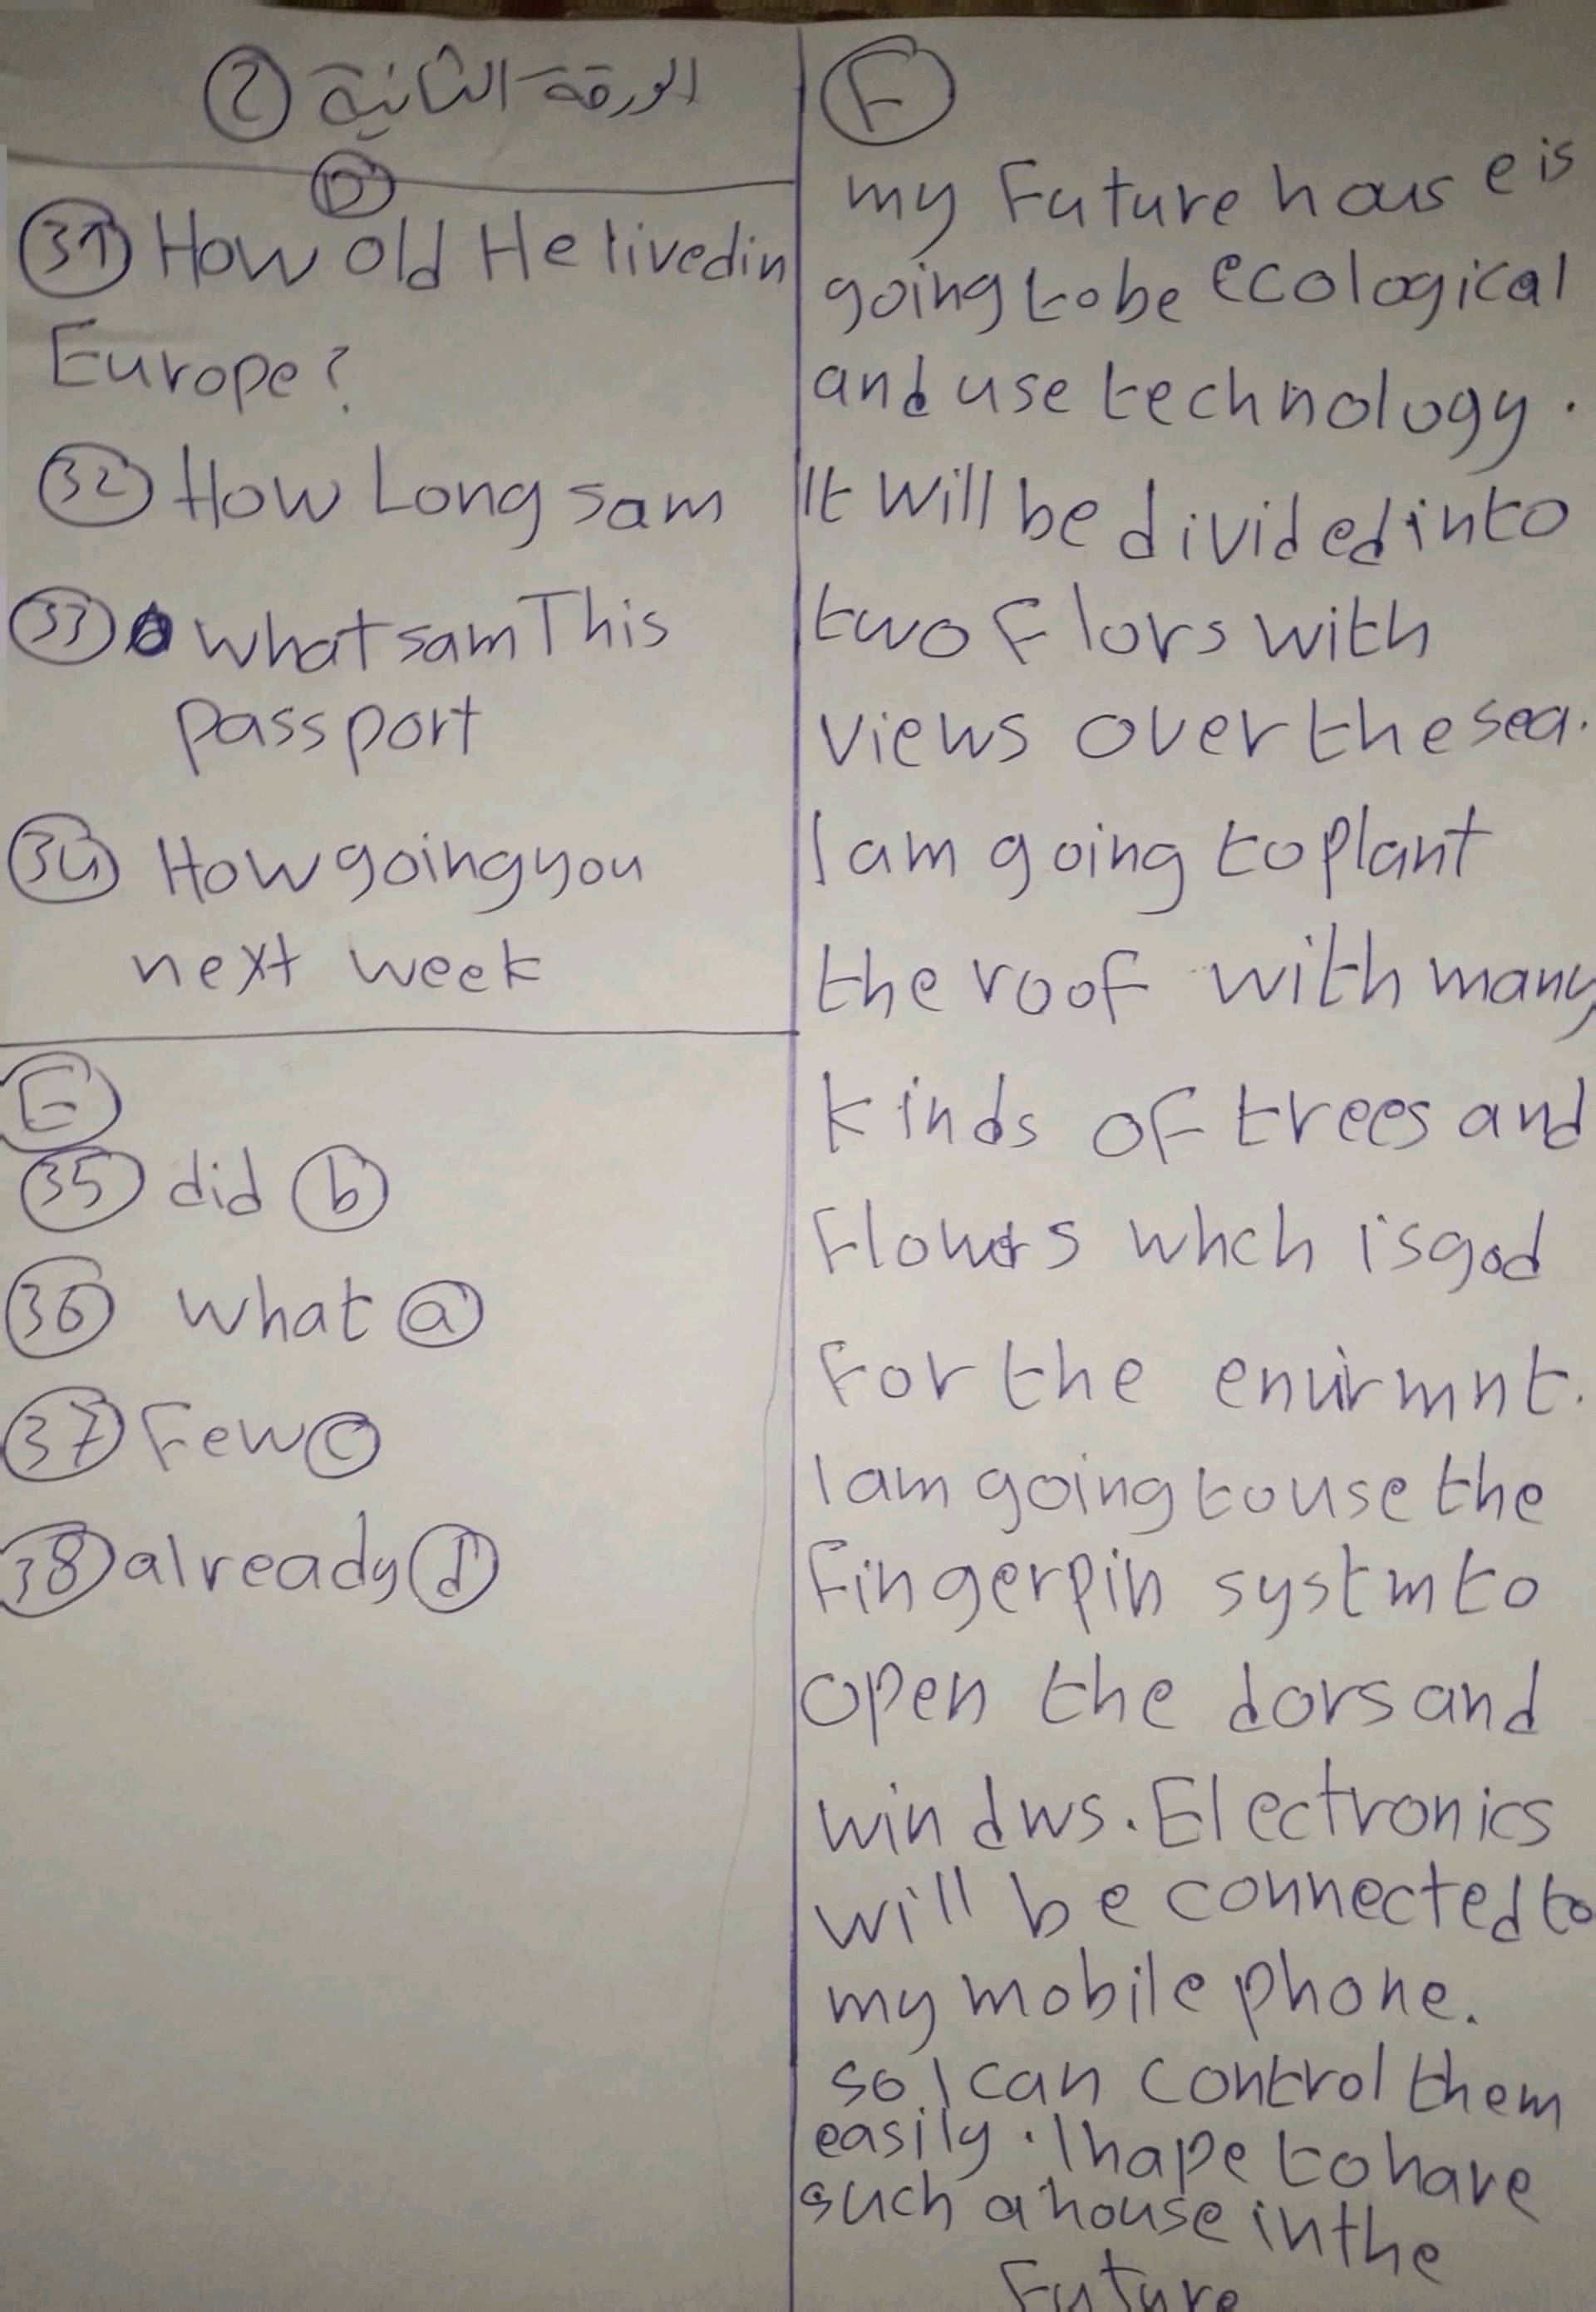 الورقة الثانية ②
D
31 How old He lived in
Europe?
32 How Long sam
33 what sam This
passport
34 How going you
next week
E
35 did b
36 what a
37 Few c
38 already d
F
my Future house is
going to be ecological
and use technology.
It will be divided into
two Flors with
views over the sea.
I am going to plant
the roof with many
kinds of trees and
Flowers whch is god
For the envirmnt.
I am going to use the
Fingerpin systm to
open the dors and
windws. Electronics
will be connected to
my mobile phone.
so I can control them
easily. I hape to have
such a house in the
Future